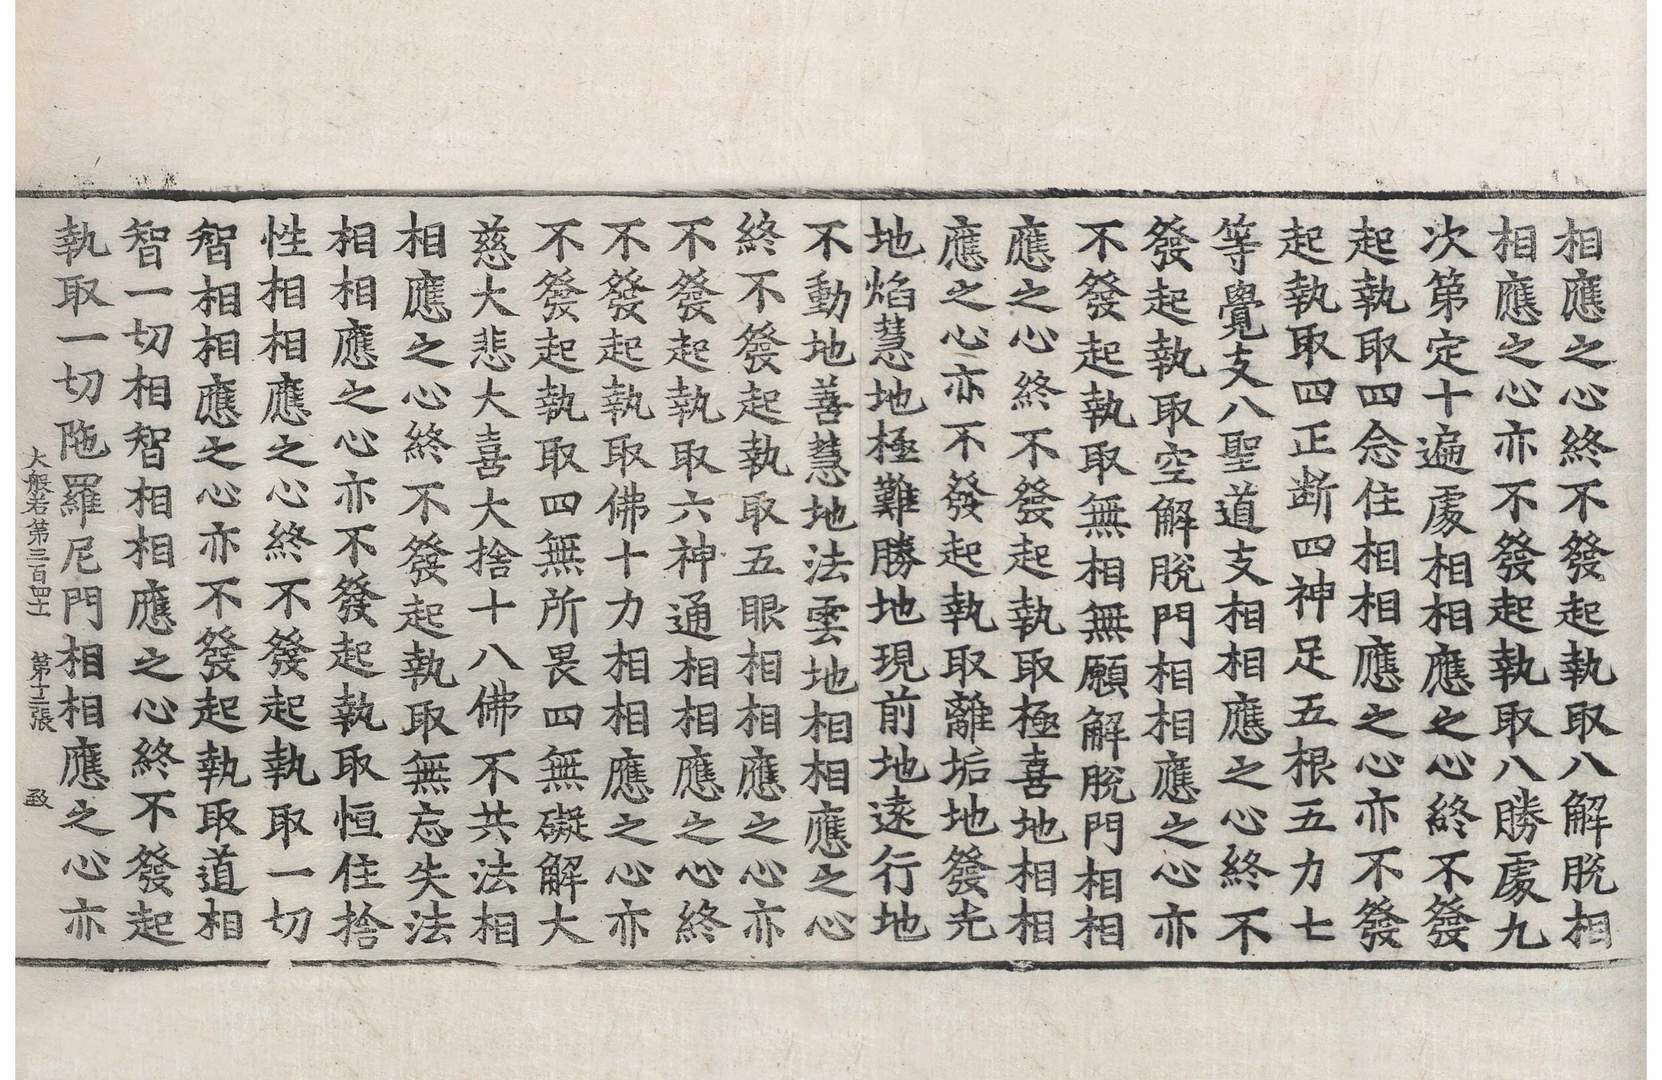 相應之心終不發起執取八解脫相
相應之心亦不發起執取八勝處九
次第定十遍處相相應之心終不發
起執取四念住相相應之心亦不發
起執取四正断四神足五根五力七
等覺支八聖道支相相應之心終不
發起執取空解脫門相相應之心亦
不發起執取無相無願解脫門相相
應之心終不發起執取極喜地相相
應之心亦不發起執取離垢地發光
地焰慧地極難勝地現前地遠行地
不動地善慧地法雲地相相應之心
終不發起執取五眼相相應之心亦
不發起執取六神通相相應之心終
不發起執取佛十力相相應之心亦
不發起執取四無所畏四無礙解大
慈大悲大喜大捨十八佛不共法相
相應之心終不發起執取無忘失法
相相應之心亦不發起執取恒住捨
性相相應之心終不發起執取一切
智相相應之心亦不發起執取道相
智一切相智相相應之心終不發起
執取一切陁羅尼門相相應之心亦
大般若第三百四十 第十三張 致